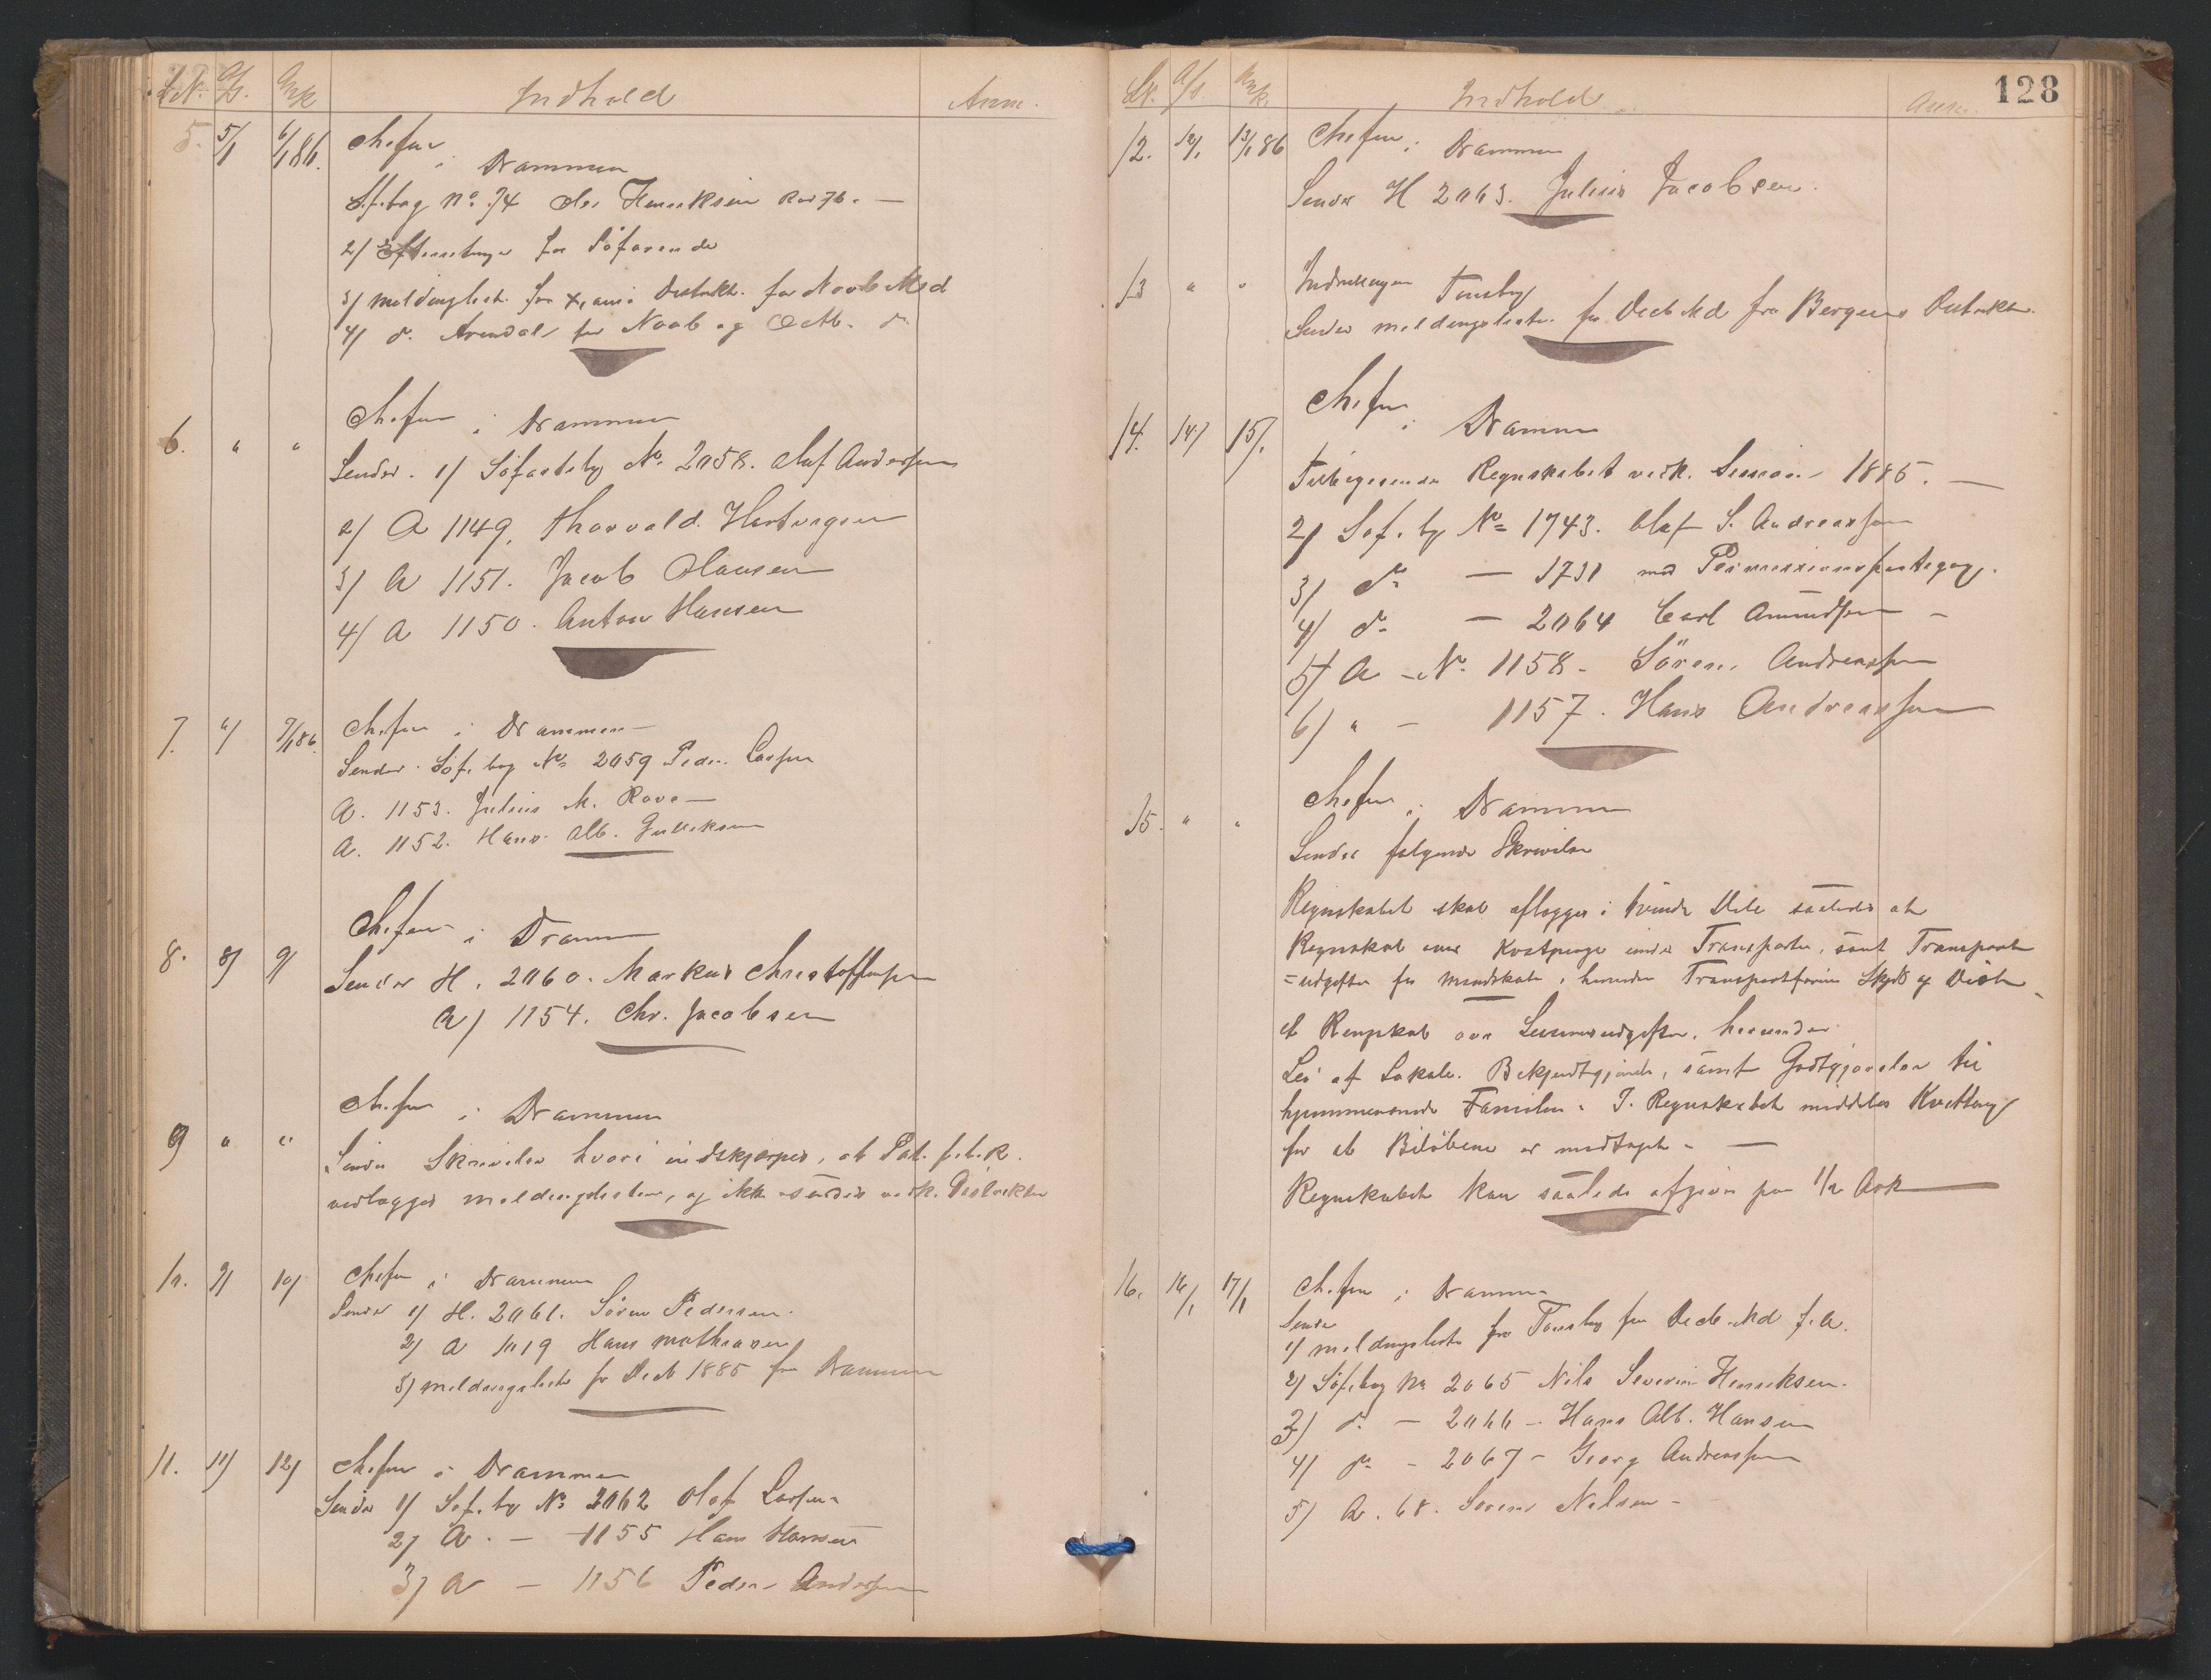 L.N. Indhold Anm.
5. 5/1 6/1 86. Chefen i Drammen
S.f.bog No. 74 Ole Henriksen
2/ Efterretninger for Söfarende
3/ meldingslist. for X,ania Distrikt. for Novb Md
4/ do. Arendal for Novb og Octb. do
6. " " Chefen i Drammen
Sender. 1/ Söfartsbog No. 2058. Oluf Andersen
2/ A 1149. Thorvald Hartvigsen
3/ A 1151. Jacob Olausen
4/ A 1150. Anton Hansen
7. 6/ 7/1 86. Chefen i Drammen
Sender Söf. bog No 2059 Peder Larsen
A. 1153. Julius M. Rove
A. 1152. Hans Alb. Gulliksen
8. 8/ 9/ Chefen i Drammen
Sender H. 2060. Markus Christoffersen
A) 1154. Chr. Jacobsen
9 " " Chefen i Drammen
Sender Skrivelse hvori indskjærpes, at Pat.
vedlægges meldingslisten, og ikke sendes vedk. Distrikter
10. 9/ 10/ Chefen i Drammen
Sender 1/ H. 2061. Sören Pedersen.
2/ A 1019 Hans Mathiasen
3) meldingsliste for Decb 1885 fra Drammen
11. 11/ 12/ Chefen i Drammen
Sender 1/ Söf. bog No 2062 Olaf Larsen
2) A. — 1155 Hans Hansen
3) A — 1156 Peder Andersen
128
Indhold Anm.
12. 12/1 13/1 86 Chefen i Drammen
Sender H 2063. Julius Jacobsen.
13 " " Indrulleringen Tönsberg
Sender meldingsliste for Decb Md fra Bergens Distrikt.
14. 14/ 15/. Chefen i Drammen
Tilbagesender Regnskabet vedk. Session 1885. —
2) Söf. bog No 1743. Olaf S. Andreassen
3) do — 1731 med Permissionspategng.
4/ do — 2064 Carl Amundsen —
5) A — No. 1158 — Sören Andreassen
6) " — 1157. Hans Andreassen
15. " " Chefen i Drammen
Sender følgende Skrivelse
Regnskabet skal aflægges i tvende Dele saaledes at
Regnskab over Kostpenge under Transporter, samt Transport
=udgifter for mandskab, herunder Transportførere Skyds og Diæt
et Regnskab over Sessionsudgifter, herunder
Leie af Lokale. Bekjendtgjörelse, samt Godtgjørelse til
hjemmeværende Familier. I Regnskabet meddeles Kvittering
for at Beløbene er modtaget — —
Regnskabet kan saaledes afgives paa 1/2 Ark
16. 16/1 17/1 Chefen i Drammen
Sender
1) meldingsliste fra Tönsberg for Decb. Md f. A.
2) Söf.bog No 2065 Nils Severin Henriksen.
3) do — 2066 — Hans Alb. Hansen
4) do — 2067 — Georg Andreassen
5) A. 68. Sören Nilsen —